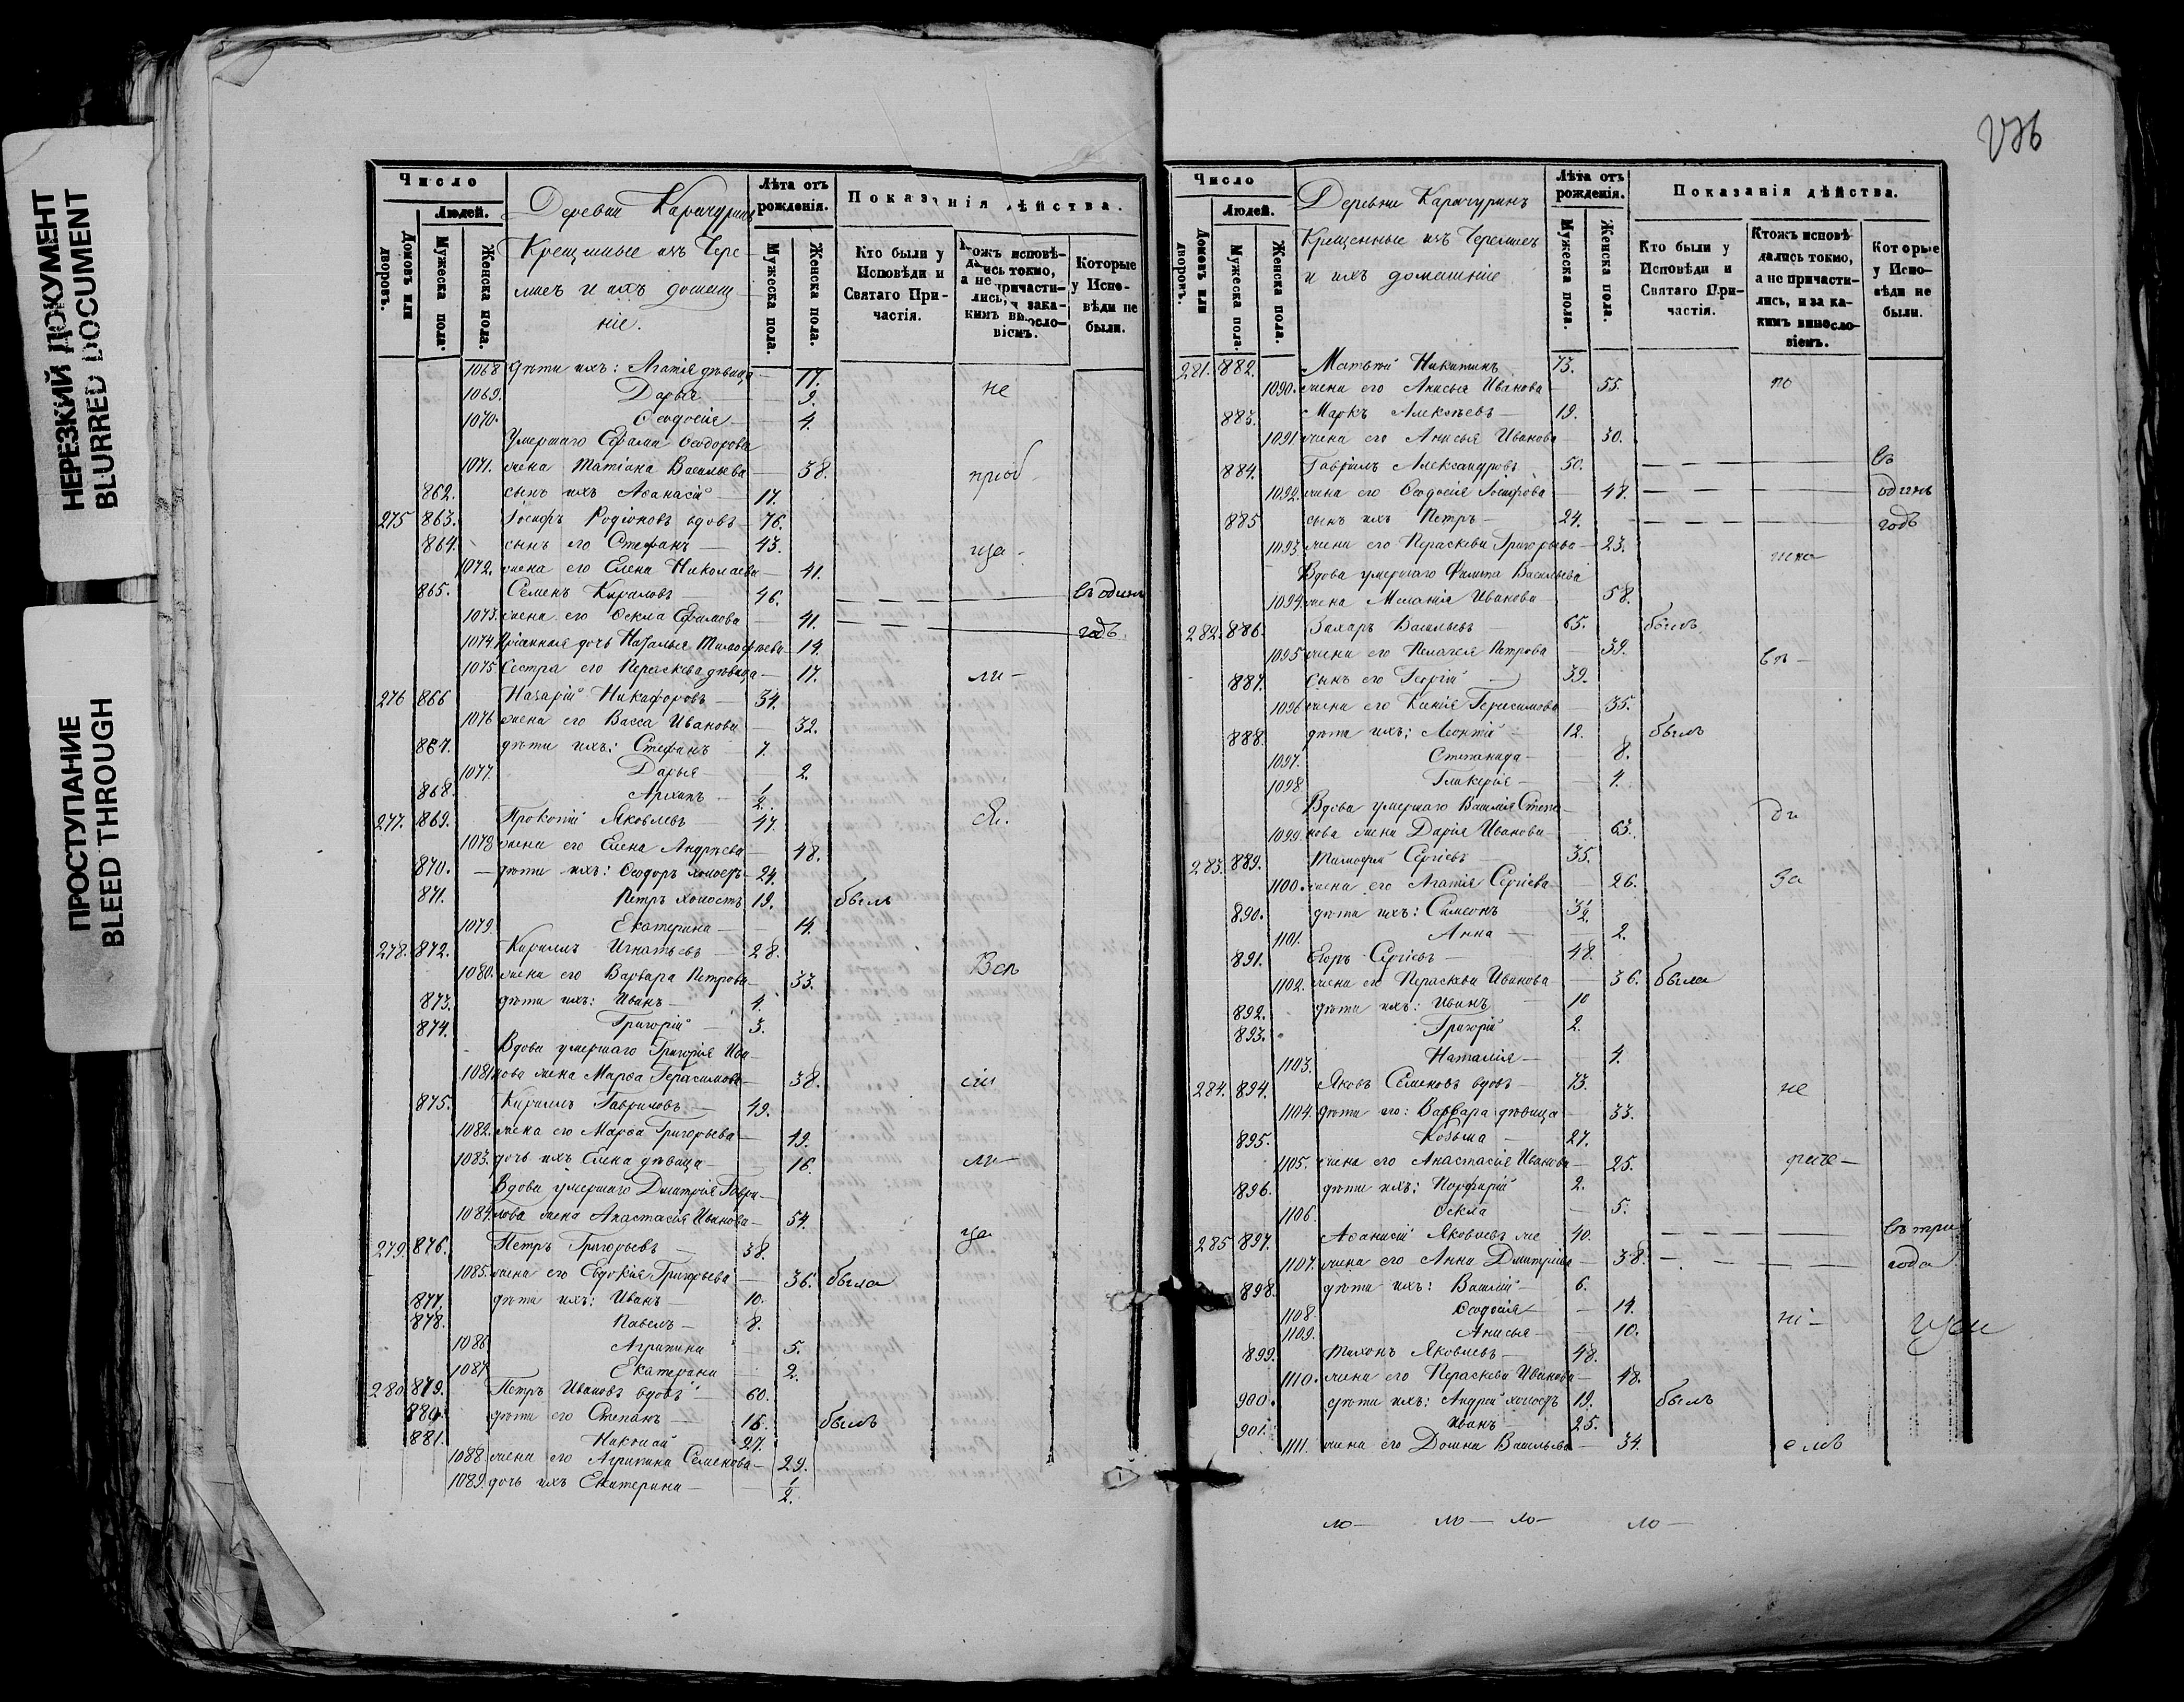 НЕРЕЗКИЙ ДОКУМЕНТ
BLURRED DOCUMENT
ПРОСТУПАНИЕ
BLEED THROUGH
Число
Людей.
Домовъ или дворовъ.
Мужеска пола.
Женска пола.
Деревни Карачурин
Крещеные изъ Чере-
мисъ и ихъ домаш-
ніе.
Лѣта отъ рожденія.
Мужеска пола.
Женска пола.
Показанія дѣйства.
Кто были у Исповѣди и Святаго При-частія.
Ктожъ исповѣ-дались токмо, а не причасти-лись, и за ка-кимъ винословіемъ.
Которые у Испо-вѣди не были.
1068 дѣти ихъ: Агапія дѣвица 17.
1069. Дарья 9. не
1070. Ѳеодосія 4.
Умершаго Ефрема Ѳеодорова
1071. жена Татіана Васильева 38. пріоб
862. сынъ ихъ Аѳанасій 17.
275 863. Іосифъ Родіоновъ вдовъ 76.
864. сынъ его Стефанъ 43. ща
1072. жена его Елена Николаева 41.
865. Семенъ Кириловъ 46. въ одинъ
1073. жена его Ѳекла Ефимова 41. годъ.
1074. Пріемная дочь Наталья Тимофѣева 14.
1075. Сестра его Пераскева дѣвица 17. ли
276 866 Назарій Никифоровъ 34.
1076 жена его Васса Иванова 32.
867. дѣти ихъ: Стефанъ 7.
1077. Дарья 2.
868. Архипъ 1/2.
277. 869. Прокопій Яковлевъ 47. ся.
1078 жена его Елена Андрѣева 48.
870. дѣти ихъ: Ѳеодоръ холостъ 24.
871. Петръ холостъ 19. былъ
1079. Екатерина 14.
278. 872. Кириллъ Игнатьевъ 28.
1080. жена его Варвара Петрова 33. Всѣ
873. дѣти ихъ: Иванъ 4.
874. Григорій 3.
Вдова умершаго Григорія Ива-
1081. нова жена Марѳа Герасимова 38.
875. Кириллъ Гавриловъ 49.
1082. жена его Марѳа Григорьева 49.
1083. дочь ихъ Елена дѣвица 16. ли
Вдова умершаго Дмитрія Гаври-
1084. лова жена Анастасія Иванова 54.
279. 876. Петръ Григорьевъ 38. ща
1085. жена его Евдокія Григорьева 36. была
877. дѣти ихъ: Иванъ 10.
878. Павелъ 8.
1086 Агрипина 5.
1087 Екатерина 2.
280 879. Петръ Ивановъ вдовъ 60.
880. дѣти его Степанъ 16. былъ
881. Николай 27.
1088 жена его Агрипина Семенова 29.
1089. дочь ихъ Екатерина 1/2.
Число
Людей.
Домовъ или дворовъ.
Мужеска пола.
Женска пола.
Деревни Карачуринъ
Крещенные изъ Черемисъ
и ихъ домашніе
Лѣта отъ рожденія.
Мужеска пола.
Женска пола.
Показанія дѣйства.
Кто были у Исповѣди и Святаго При-частія.
Ктожъ исповѣ-дались токмо, а не причасти-лись, и за ка-кимъ винословіемъ.
Которые у Испо-вѣди не были.
281. 882. Матвѣй Никитинъ 73.
1090. жена его Анисья Иванова 55. по
883. Маркъ Алексѣевъ 19.
1091. жена его Анисья Иванова 30.
884. Гавріилъ Александровъ 50. въ
1092. жена его Ѳеодосія Іосифова 47. одинъ
885 сынъ ихъ Петръ 24. годъ
1093. жена его Пераскева Григорьева 23.
Вдова умершаго Филипа Васильева
1094. жена Меланія Иванова 58.
282. 886. Захаръ Васильевъ 65. былъ
1095 жена его Пелагея Петрова 39.
887. сынъ его Георгій 39.
1096 жена его Ксенія Герасимова 35.
888. дѣти ихъ: Леонтій 12. былъ
1097. Степанида 8.
1098 Гликерія 4.
Вдова умершаго Василія Степа-
1099. нова жена Дарія Иванова 63.
283. 889. Тимофей Сергіевъ 35.
1100. жена его Агапія Сергіева 26. за
890. дѣти ихъ: Симеонъ 3 1/2.
1101. Анна 2.
891. Егоръ Сергіевъ 48.
1102. жена его Пераскева Иванова 36. была
892. дѣти ихъ: Иванъ 10
893. Григорій 2.
1103. Наталія 4.
284. 894. Яковъ Семеновъ вдовъ 73. не
1104. дѣти его: Варвара дѣвица 33.
895. Козьма 27.
1105. жена его Анастасія Иванова 25.
896. дѣти ихъ: Порфирій 2.
1106. Ѳекла 5.
285 897. Аѳанасій Яковлевъ 40. въ три
1107. жена его Анна Дмитріева 38. года
898. дѣти ихъ: Василій 6.
1108. Ѳеодосія 14.
1109. Анисья 10.
899. Тихонъ Яковлевъ 48.
1110. жена его Пераскева Иванова 48.
900. дѣти ихъ: Андрей холостъ 19. былъ
901. Иванъ 25.
1111. жена его Домна Васильева 34. емъ